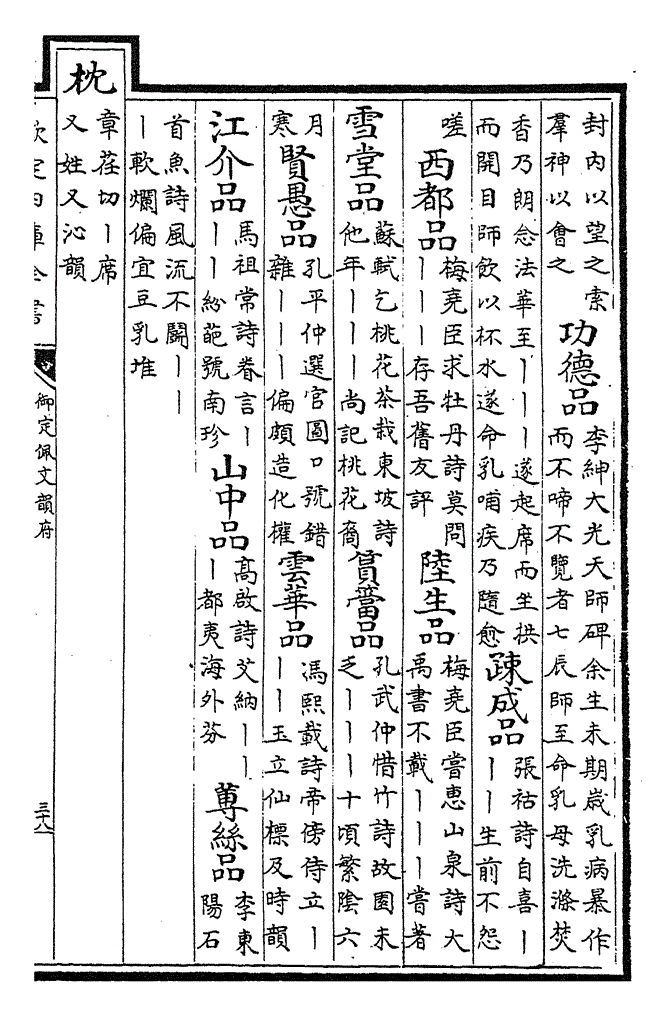 封内以望之索
羣神以會之
功德品
李紳大光天師碑余生未期歲乳病暴作
而不啼不覽者七辰師至命乳母洗滌焚
香乃朗念法華至丨丨丨遂起席而坐拱
而開目師飲以杯水遂命乳哺疾乃隨愈
疎成品
張祜詩自喜丨
丨丨生前不怨
嗟
西都品
梅堯臣求牡丹詩莫問
丨丨丨存吾舊友評
陸生品
梅堯臣嘗惠山泉詩大
禹書不載丨丨丨嘗著
雪堂品
蘇軾乞桃花茶栽東坡詩
他年丨丨丨尚記桃花裔
篔簹品
孔武仲惜竹詩故園未
乏丨丨丨十頃繁陰六
月
寒
賢愚品
孔平仲選官圖口號錯
雜丨丨丨偏頗造化權
雲華品
馮熙載詩帝傍侍立丨
丨丨玉立仙標及時韻
江介品
馬祖常詩眷言丨
丨丨紛葩號南珍
山中品
高啟詩艾納丨丨
丨都夷海外芬
蓴絲品
李東
陽石
首魚詩風流不鬭丨丨
丨軟爛偏宜豆乳堆
枕
章荏切丨席
又姓又沁韻
欽定四庫全書
御定佩文韻府
三十八